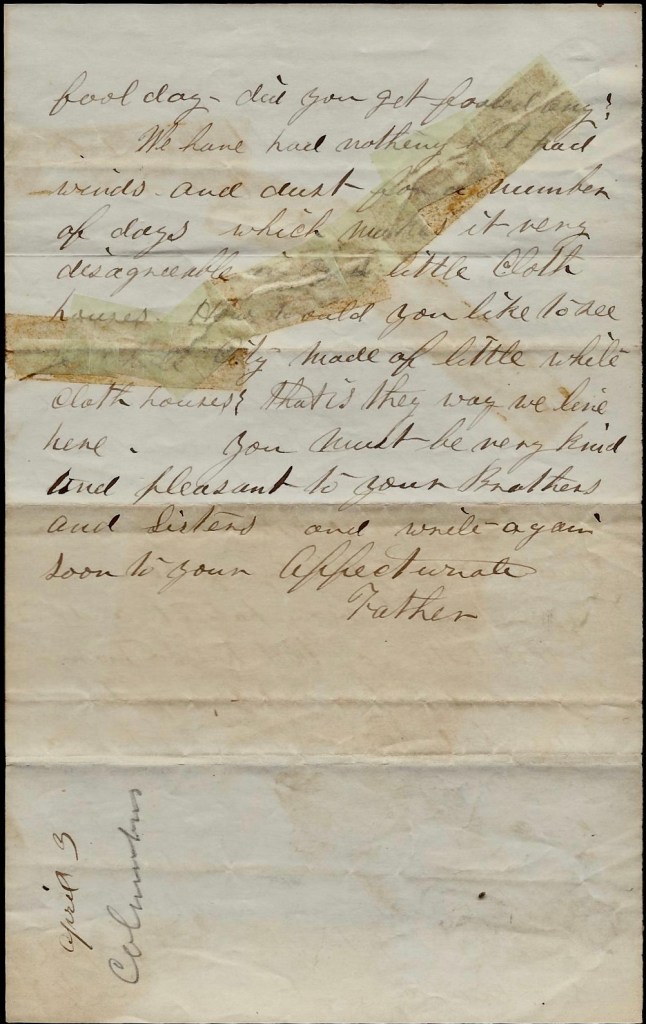 fool day - did you get fooled any?
We have had nothing but had
winds and dust for a number
of days which makes it very
disagreeable in our little Cloth
houses. How would you like to see
City made of little white
cloth houses? that is they way we live
here. You must be very kind
and pleasant to your Brothers
and Sisters and write again
soon to your Affectunate
Father
April 3
Columbus